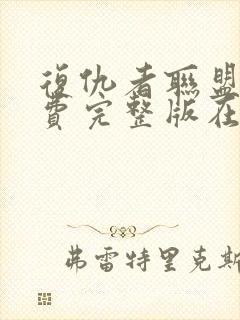 復仇者聯盟
費完整版在
弗雷特里克斯